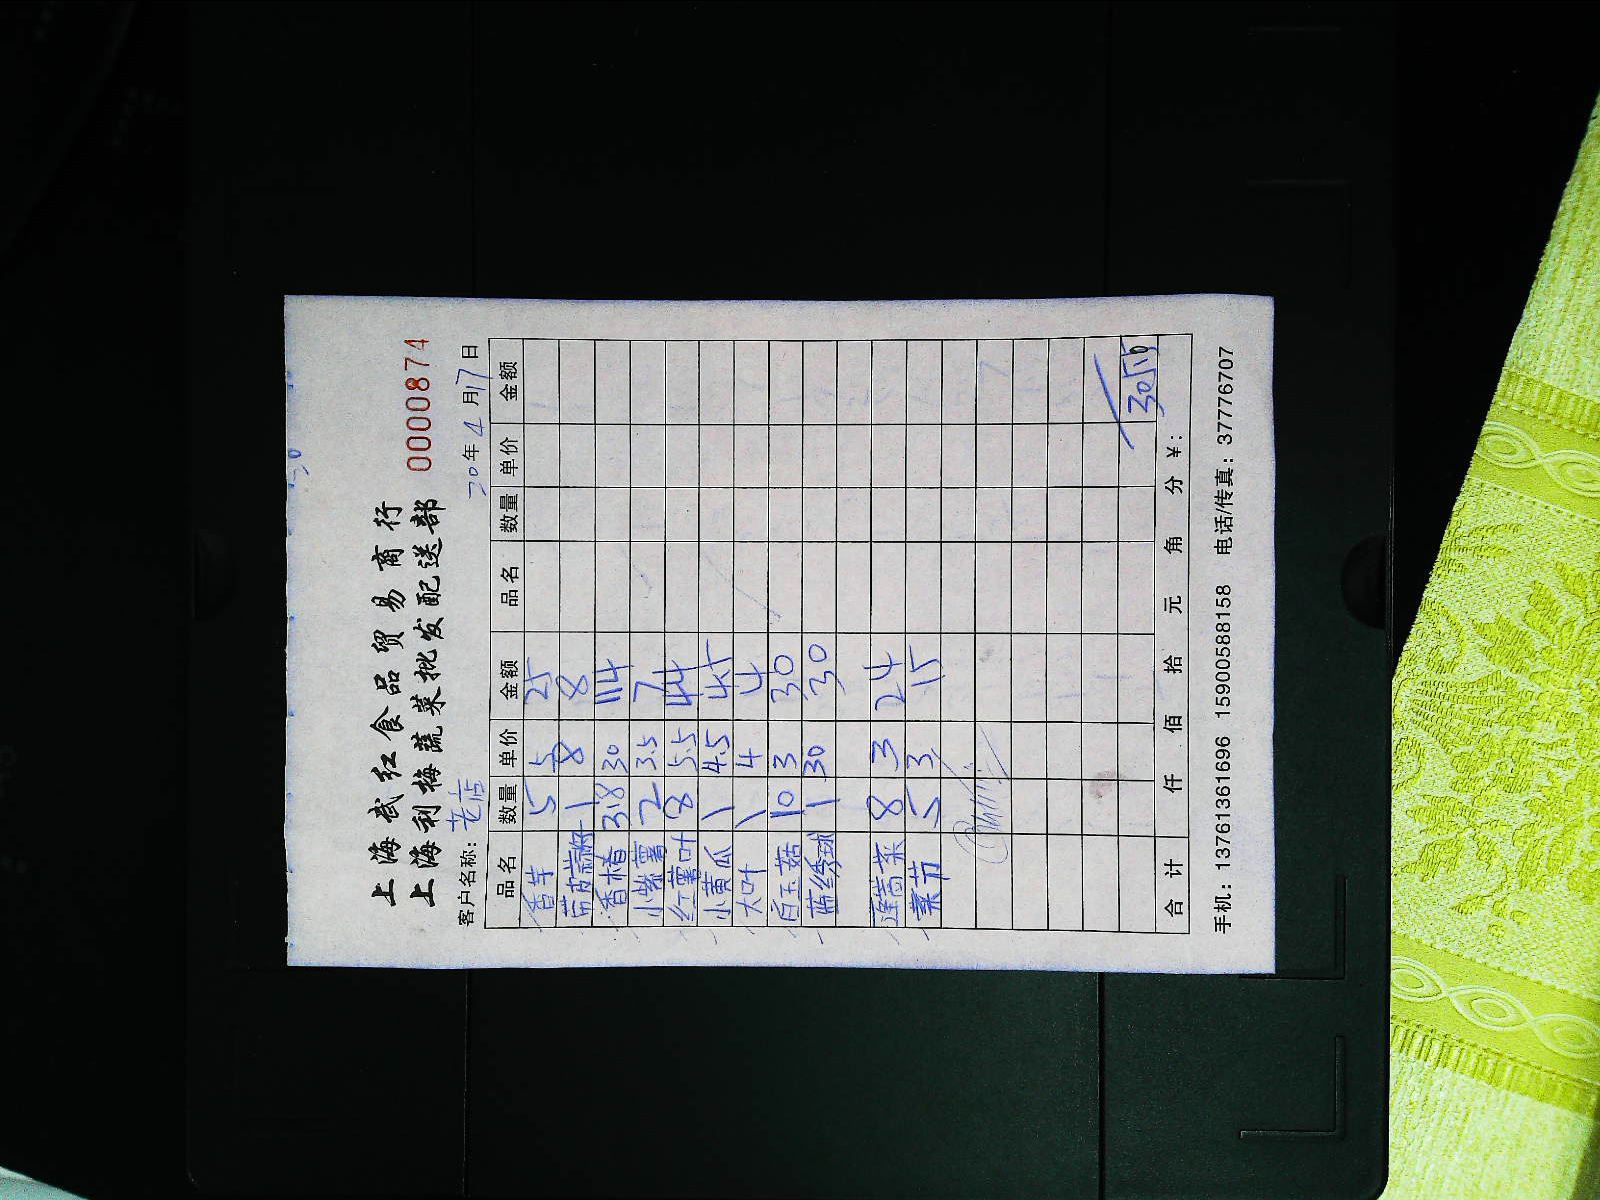 上海武红食品贸易商行
上海利梅蔬菜批发配送部 0000874
客户名称: 老店 20年4月17日
品名 数量 单价 金额 品名 数量 单价 金额
香芋 5 5 25
1 8 8
香椿 3.8 30 114
小紫薯 2 3.5 7
红薯叶 8 5.5 44
小黄瓜 1 4.5 4.5
大叶 1 4 4
白玉菇 10 3 30
蓝绣球 1 30 30
莲苔菜 8 3 24
菜节 5 3 15
合计 仟 佰 拾 元 角 分 ¥:
手机: 13761361696 15900588158 电话/传真: 37776707